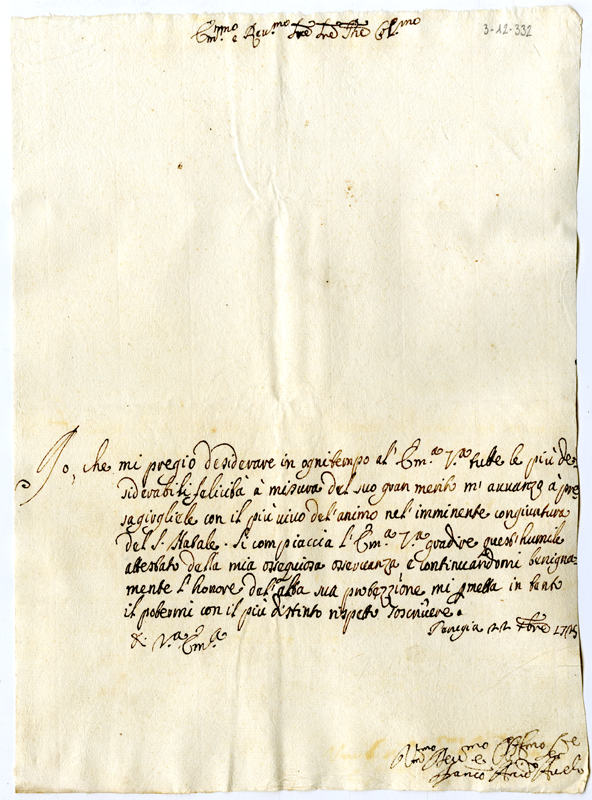 Em.mo e Reu.mo Sre Sre Pne Col.mo
3-12-332
Io, che mi pregio desiderare in ogni tempo al' Em.a V.a tutte le più de-
siderabili felicità à misura del suo gran merito m' auuanzo a pre
sagirgliele con il più uiuo del' animo nel' imminente congiuntura
del S. Natale. Si compiaccia l' Em.a V.a gradire quest' humile
attestato della mia ossequiosa osseruanza e continuandomi benigna-
mente l' honore del' alta sua protezzione mi pmetta in tanto
il potermi con il più distinto rispetto soscriuere.
Perugia 22 Xbre
di V.a Em.a